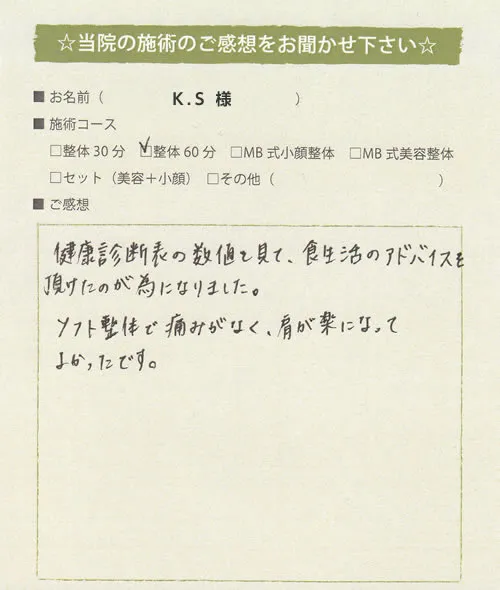 ☆当院の施術のご感想をお聞かせ下さい☆
■ お名前（ K.S 様 ）
■ 施術コース
□整体 30 分 ☑整体 60 分 □MB 式小顔整体 □MB 式美容整体
□セット（美容＋小顔） □その他（ ）
■ ご感想
健康診断表の数値を見て、食生活のアドバイスを
頂けたのが為になりました。
ソフト整体で痛みがなく、肩が楽になって
よかったです。